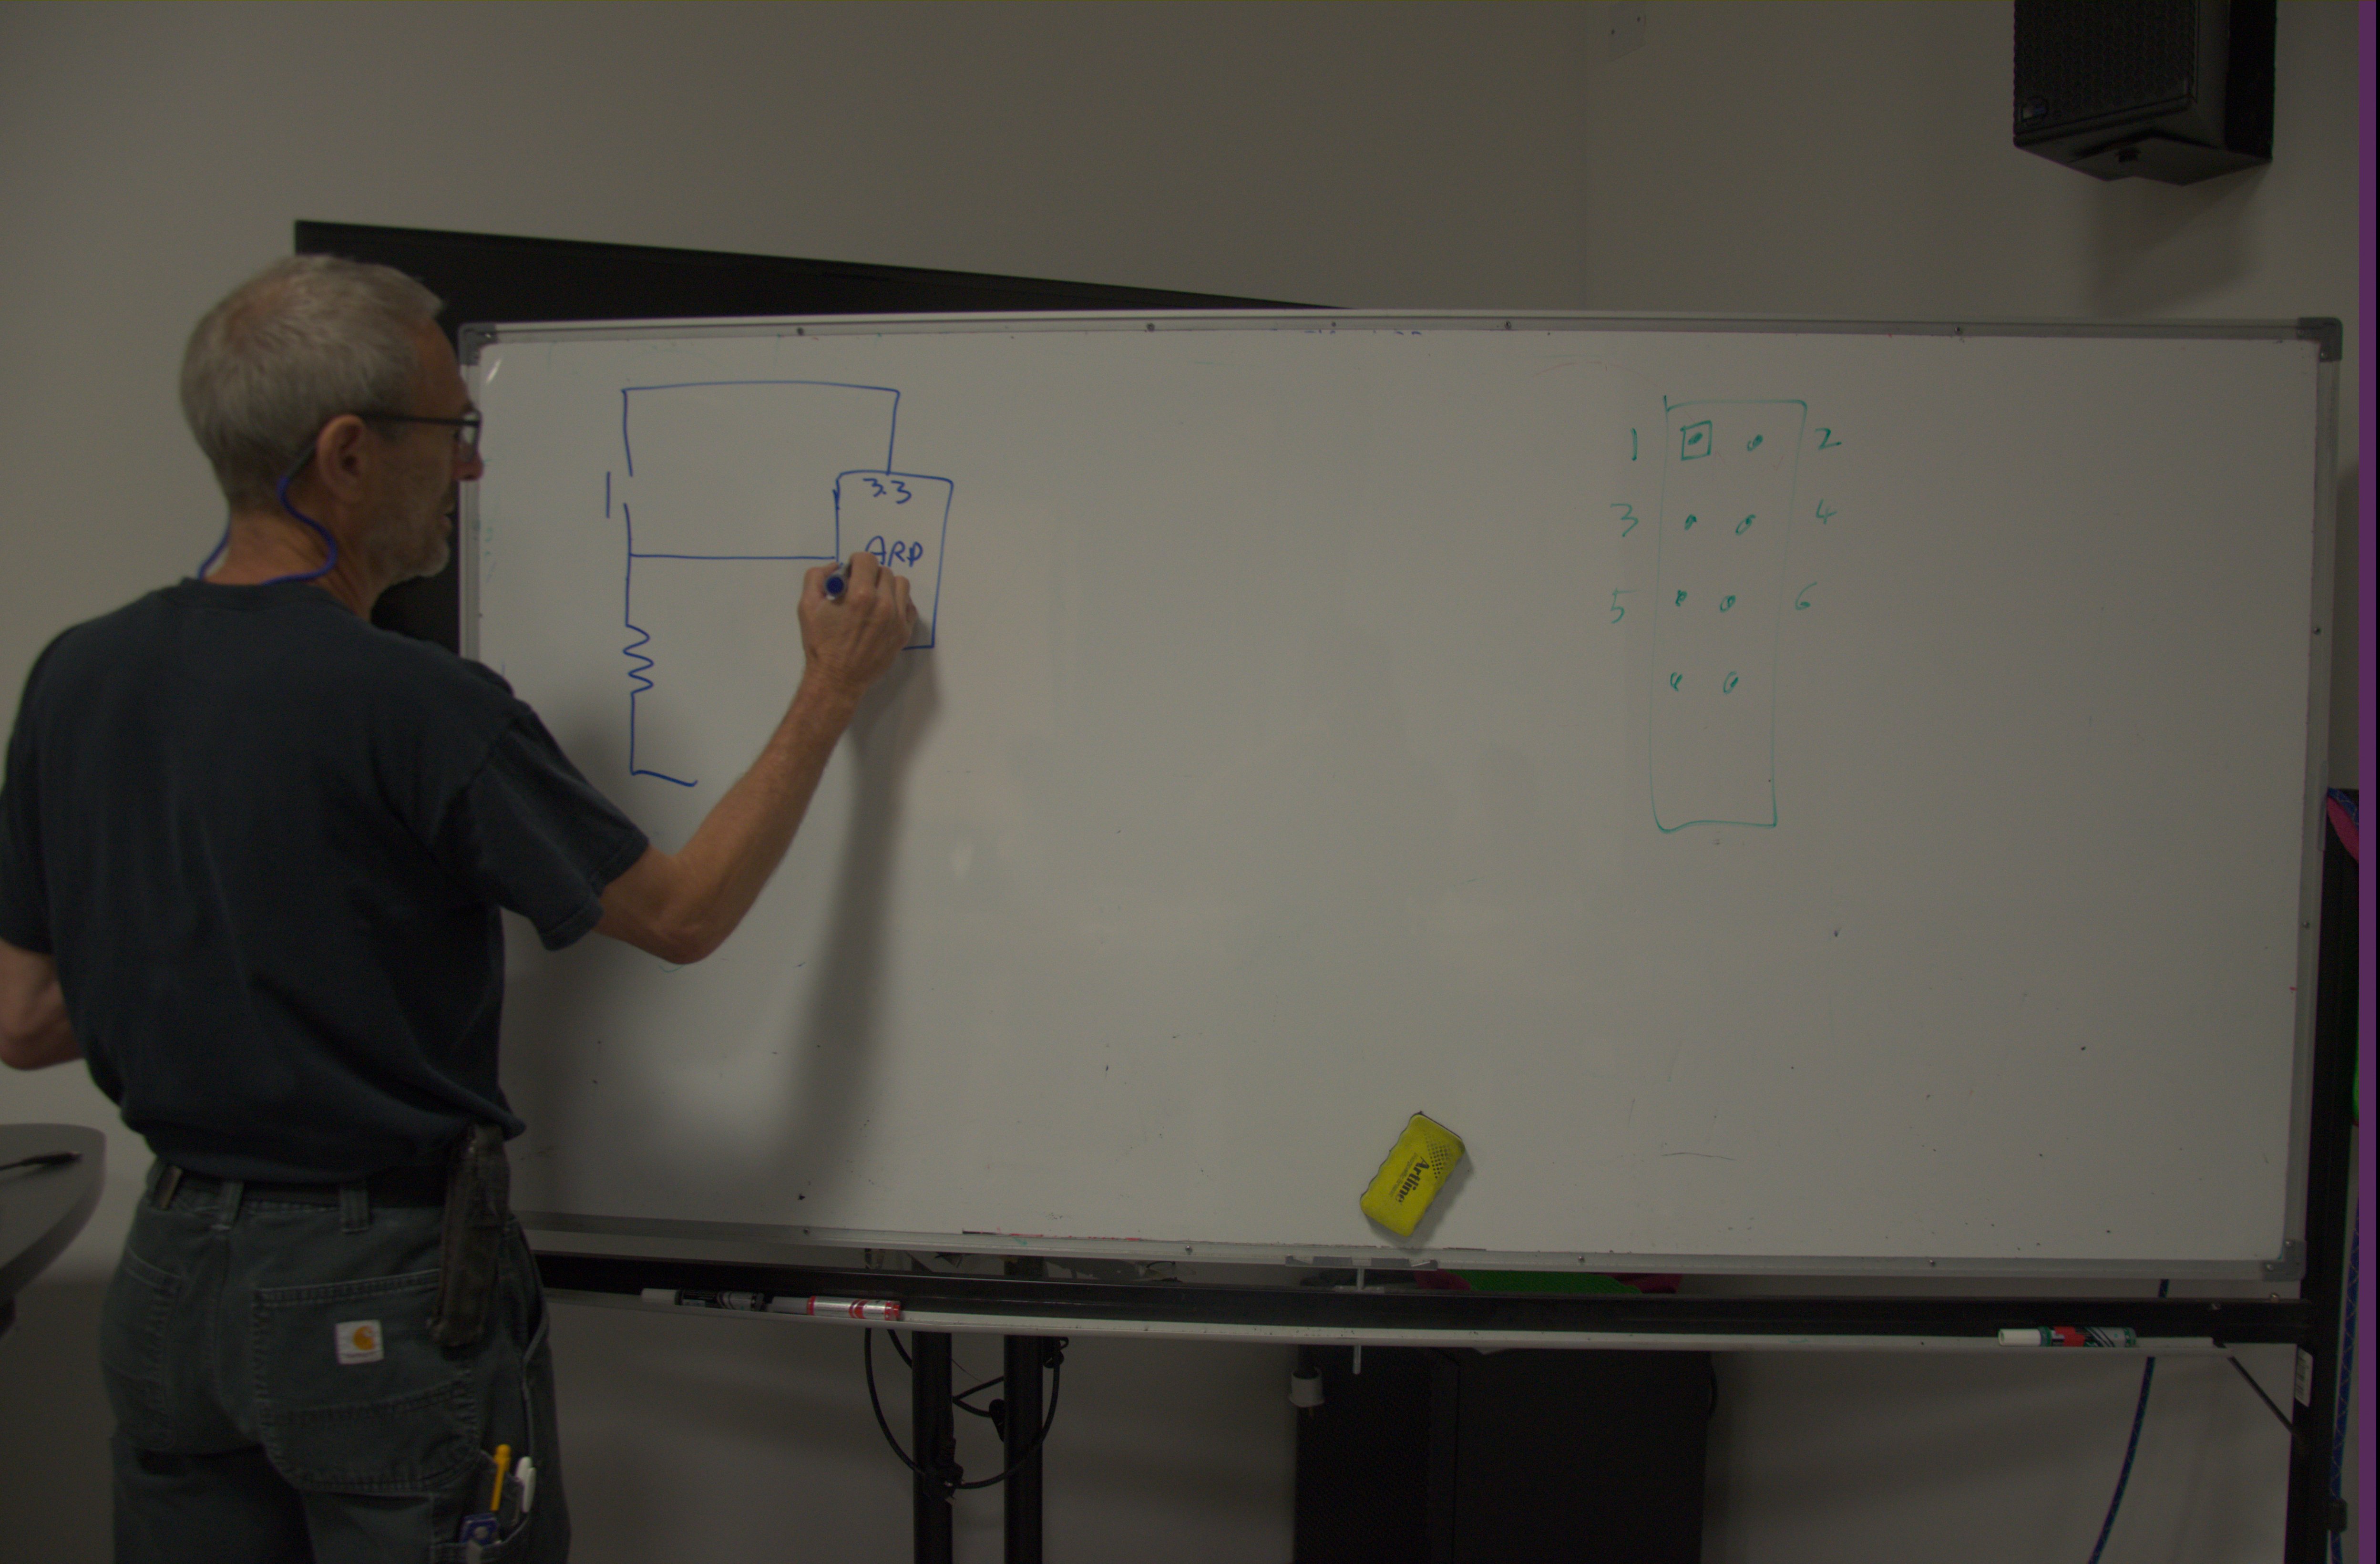 3.3
ARD
1 2
3 4
5 6
Artline